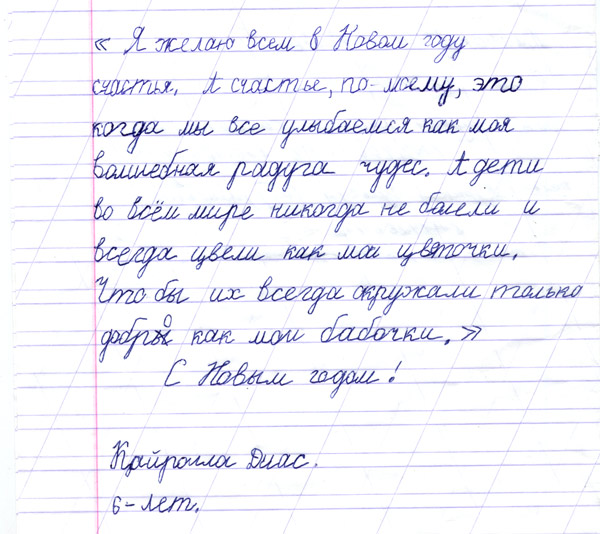 « Я желаю всем в Новом году
счастья. А счастье, по-моему, это
когда мы все улыбаемся как моя
волшебная радуга чудес. А дети
во всём мире никогда не болели и
всегда цвели как мои цветочки.
Что бы их всегда окружали только
добро как мои бабочки. »
С Новым годом!
Кайролла Диас.
6-лет.